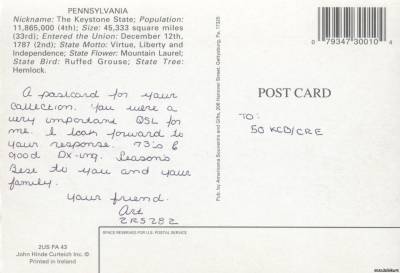 PENNSYLVANIA
Nickname: The Keystone State; Population:
11,865,000 (4th); Size: 45,333 square miles
(33rd); Entered the Union: December 12th,
1787 (2nd); State Motto: Virtue, Liberty and
Independence; State Flower: Mountain Laurel;
State Bird: Ruffed Grouse; State Tree:
Hemlock.
A postcard for your
collection. You were a
very important QSL for
me. I look forward to
your response. 73's &
good Dx-ing. Seasons
Best to you and your
family.
Your friend.
Art
2RS282
2US PA 43
John Hinde Curteich Inc. ©
Printed in Ireland
Pub. by Americana Souvenirs and Gifts, 206 Hanover Street, Gettysburg, Pa. 17325
0 79347 30010 4
POST CARD
TO:
50 KCD/CRE
SPACE RESERVED FOR U.S. POSTAL SERVICE